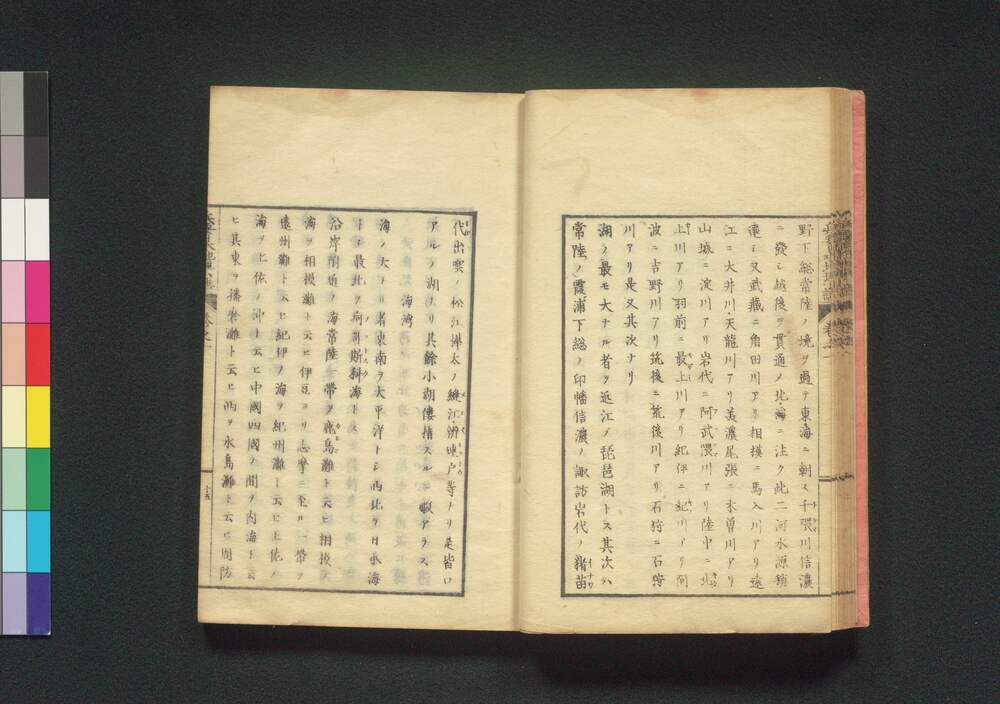 野下総常陸ノ境ヲ過テ東海ニ朝ス千隈川信濃
ニ発シ越後ヲ貫通メ北海ニ注ク此二河水源頗
遠シ又武蔵ニ角田川アリ相模ニ馬入川アリ遠
江ニ大井川天龍川アリ美濃尾張ニ木曽川アリ
山城ニ淀川アリ岩代ニ阿武隈川アリ陸中ニ北
上川アリ羽前ニ最上川アリ紀伊ニ紀川アリ阿
波ニ吉野川アリ筑後ニ荒後川アリ石狩ニ石狩
川アリ是又其次ナリ
湖ノ最モ大ナル者ヲ近江ノ琵琶湖トス其次ハ
常陸ノ霞浦下総ノ印幡信濃ノ諏訪岩代ノ猪苗
代出雲ノ松江樺太ノ
等ナリ是皆ロ
アルノ湖ナリ其餘小湖僂指スルニ暇アラス
海湾
海ノ大ナル者東南ヲ太平洋トシ西北ヲ日本海
トシ最北ヲ
海トス
沿岸附近ノ海常陸一帯ヲ鹿島灘ト云ヒ相模ノ
海ヲ相模灘ト云ヒ伊豆ヨリ志摩ニ至ル一帯ヲ
遠州灘ト云ヒ紀伊ノ海ヲ紀州灘ト云ヒ土佐ノ
海ヲ土佐ノ沖ト云ヒ中國四國ノ間ヲ内海ト云
ヒ其東ヲ播磨灘ト云ヒ西ヲ水島灘ト云ヒ周防